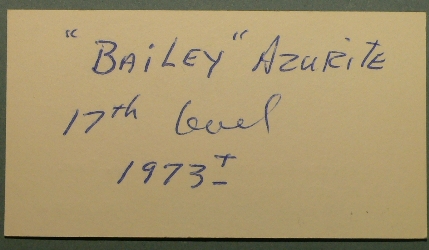 "BAiLEY" AZURiTE
17th level
1973±